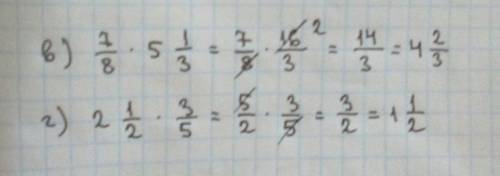 в) 7/8 · 5 1/3 = 7/8 · 16/3 ² = 14/3 = 4 2/3
г) 2 1/2 · 3/5 = 5/2 · 3/5 = 3/2 = 1 1/2